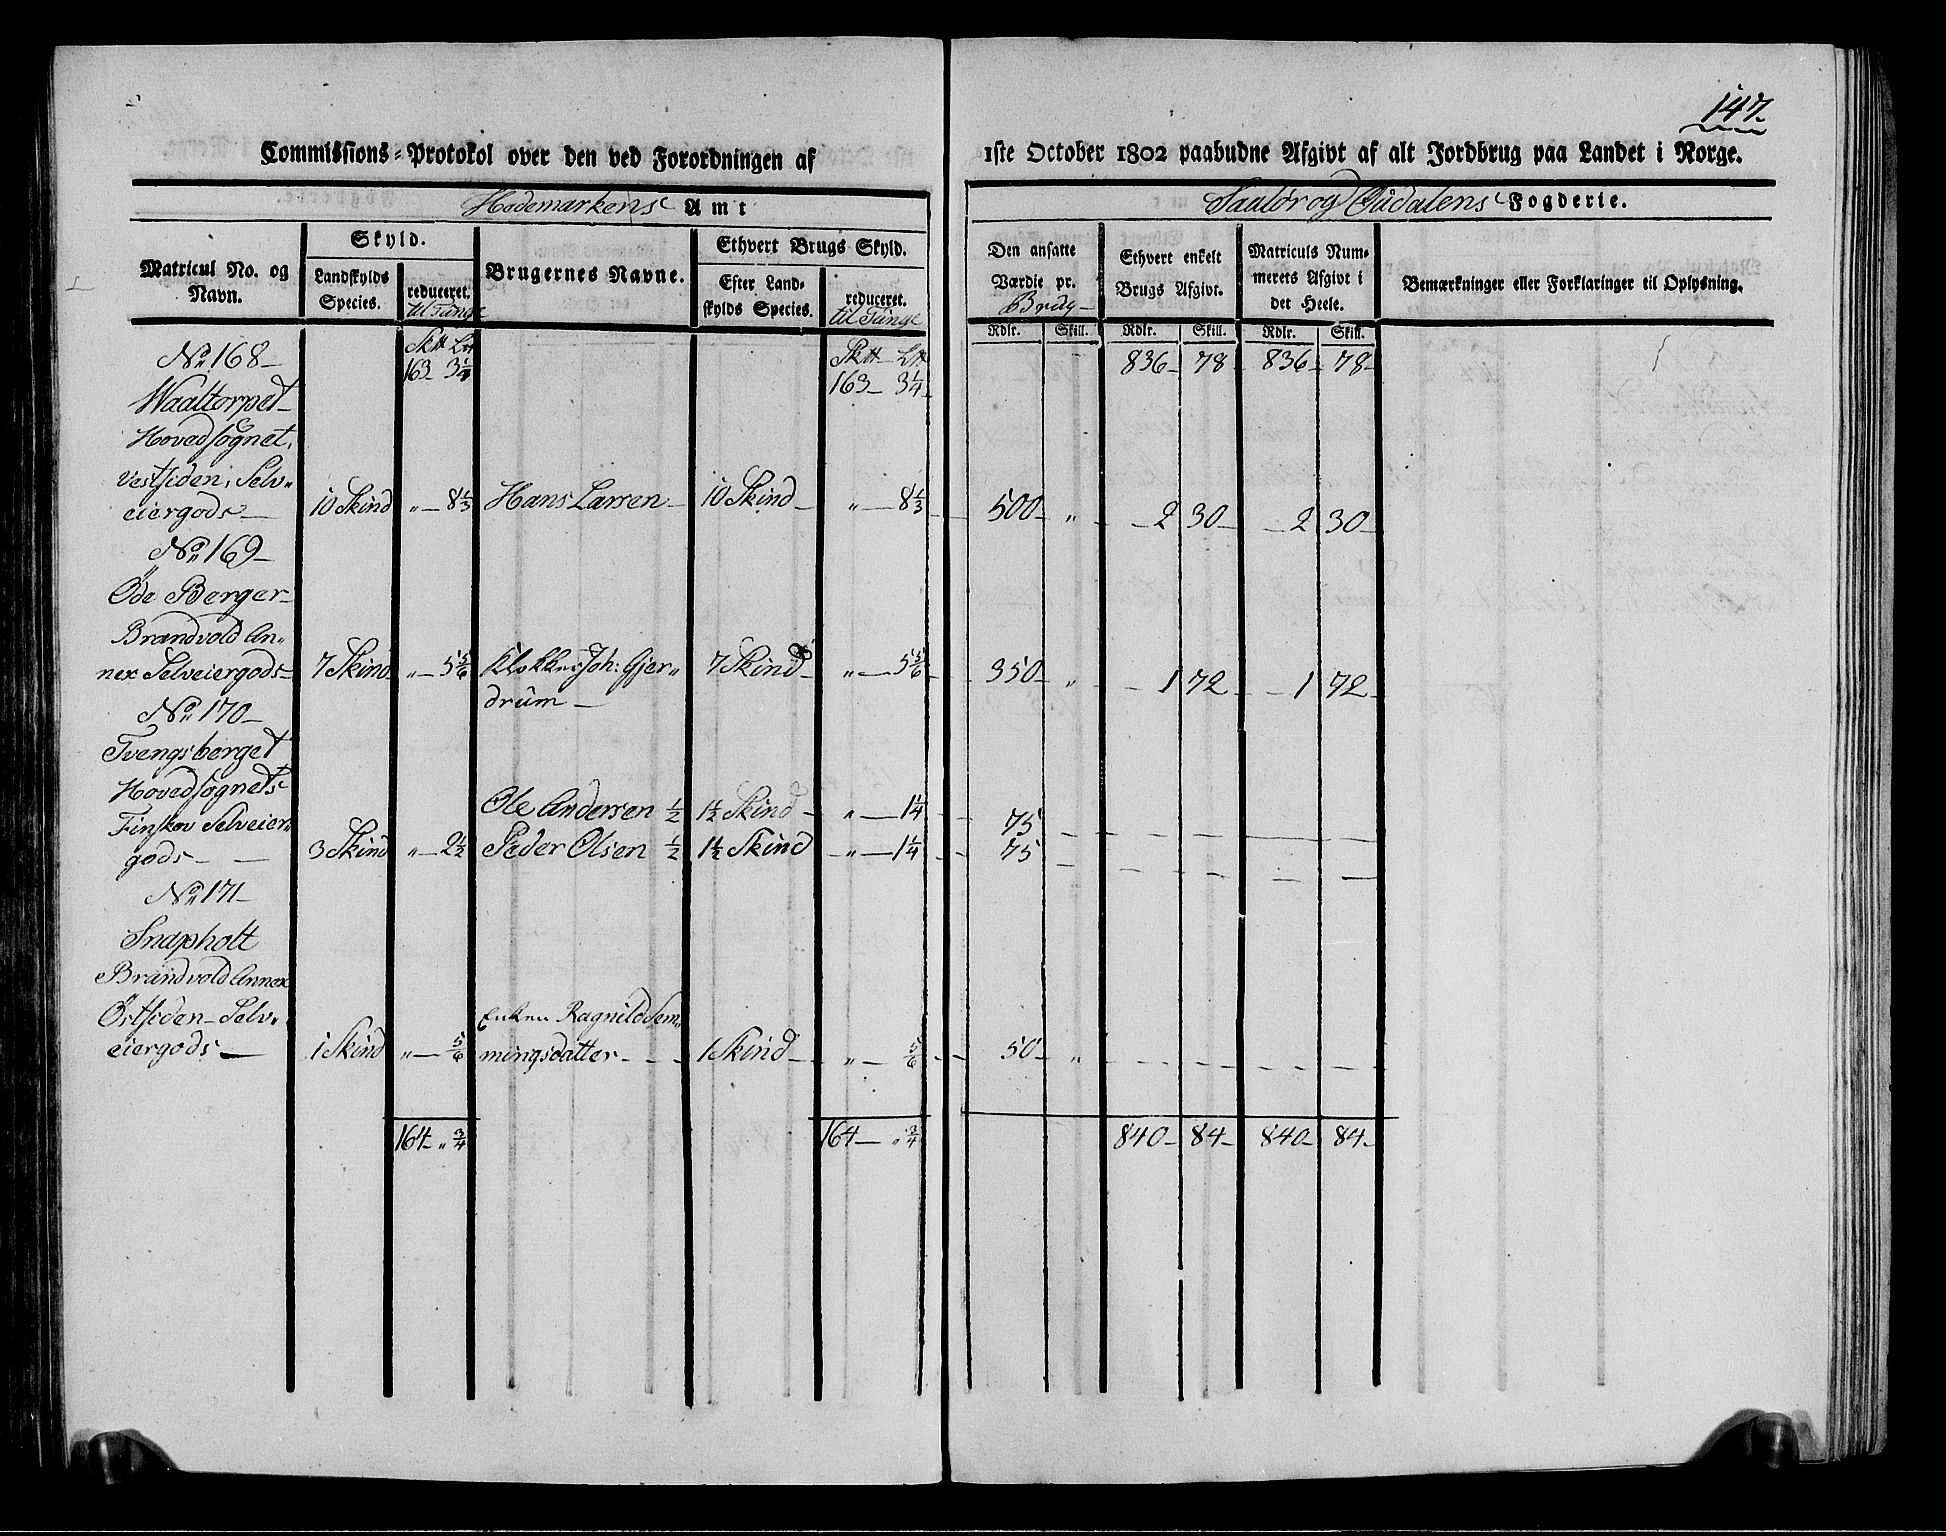 147.
Commissions-Protokol over den ved Forordningen af 1ste October 1802 paabudne Afgivt af alt Jordbrug paa Landet i Norge.
Hedemarkens Amt
Saalør og Oudalens Fogderie.
Matricul No. og Navn.
Skyld.
Landskylds Species.
reduceret. til Tunge
Brugernes Navne.
Ethvert Brugs Skyld.
Efter Landskylds Species.
reduceret. til Tunge
Den ansatte Værdie pr. Brug
Ethvert enkelt Brugs Afgivt.
Matriculs Nummerets Afgivt i det Heele.
Bemærkninger eller Forklaringer til Oplysning.
Rdlr. Skill. Rdlr. Skill. Rdlr. Skill.
Sk℔ L℔ Sk℔ L℔
163 3¼ 163 3¼ 836 78 836 78
No 168
Waaltorpet
Hovedsognet,
Vestsiden, Selv-
eiergods 10 Skind „ 8⅓ Hans Larsen 10 Skind „ 8⅓ 500 „ 2 30 2 30
No 169
Öde Berger
Brandvold An-
nex Selveiergods 7 Skind „ 5⅚ Klokker Joh: Gjer- 7 Skind „ 5⅚ 350 „ 1 72 1 72
drum
No 170
Tvengsberget
Hovedsognets
Finskov Selveier- Ole Andersen ½ 1½ Skind „ 1¼ 75
gods 3 Skind „ 2½ Peder Olsen ½ 1½ Skind „ 1¼ 75
No 171
Snapholt
Brandvold Annex
Östsiden Selv- Enken Ragnild Sem-
eiergods 1 Skind „ ⅚ mingsdatter 1 Skind „ ⅚ 50 „
164 „ ¾ 164 „ ¾ 840 84 840 84